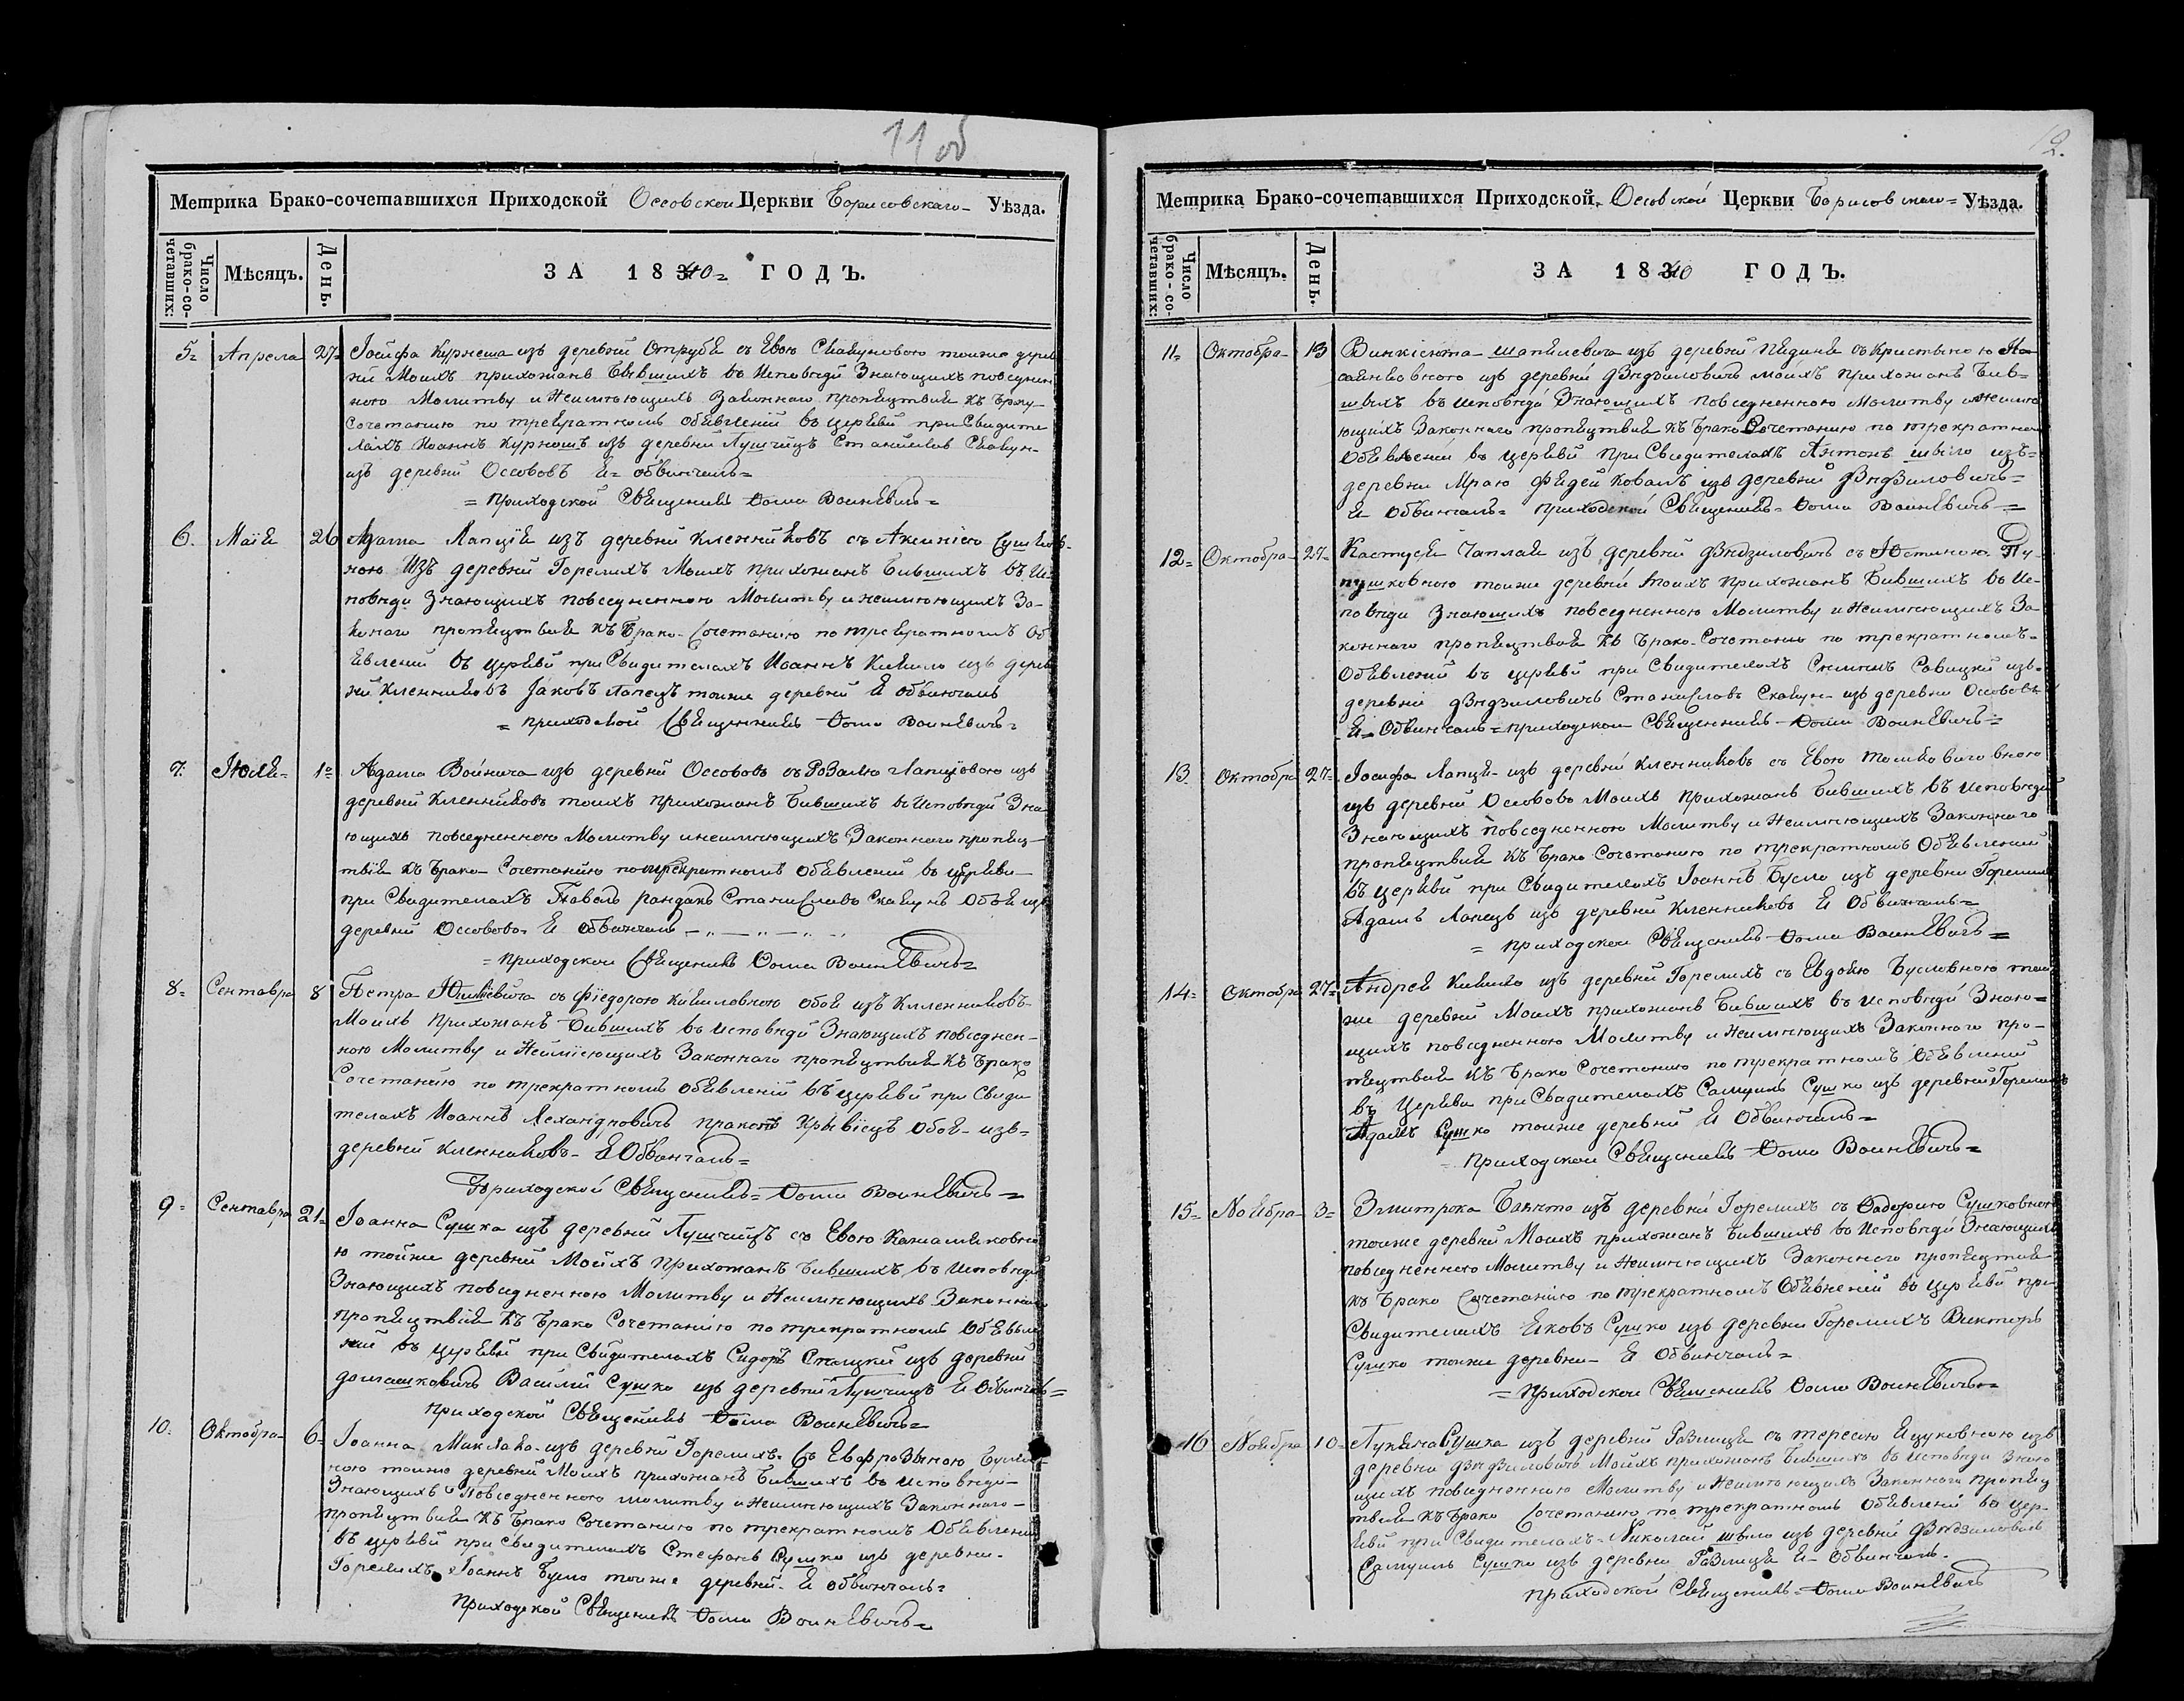 11 об
Метрика Брако-сочетавшихся Приходской Оссовской Церкви Борисовскаго Уѣзда.
Число брако-сочетавших: Мѣсяцъ. День. ЗА 1840 ГОДЪ.
5 Апреля 27 Іосифа Курнеша изъ деревни Отрубя съ Евою Скакуновою тоиже дерев
ни Моихъ прихожанъ Бывшихъ въ Исповѣди Знающихъ повседнен
ною Молитву и Неимѣющихъ Законнаго пропяцтвия къ Браку
Сочетанию по трекратномъ обявлений въ церкви при Свидите
ляхъ Иоаннъ Курнешъ изъ деревни Лушчицъ Станиславъ Скакун
изъ деревни Оссововъ Я обвинчалъ
приходской Священникъ Фома Воиневичъ
6. Маія 26 Адама Лапція изъ деревни Кленниковъ съ Анинією Сушков
ною Изъ деревни Горелихъ Моихъ прихожанъ Бившихъ въ Ис
повѣди Знающихъ повседненною Молитву и неимѣющихъ За
конаго пропяцтвия къ Брако-Сочетанию по трекратномъ Об
явлений въ церкви при Свидителахъ Иоаннъ Кивило изъ дерев
ни Кленниковъ Јаковъ Лапецъ тоиже деревни Я обвинчалъ
приходской Священникъ Фома Воиневичъ
7. Июля 1 Адама Войнича изъ деревни Оссововъ съ Розалю Лапціовою изъ
деревни Кленниковъ моихъ прихожанъ Бившихъ в Исповѣди Зна
ющихъ повседненною Молитву инеимѣющихъ Законнаго пропяц
твія къ Брако Сочетанию по трекратномъ обявлений въ Церкви
при Свидителахъ Павелъ рандакъ Станиславъ Скакунъ Обоя изъ
деревни Оссовово Я обвинчалъ
приходской Священникъ Фома Воиневичъ
8 Сентабра 8 Петра съ Фіедорою Кивиловною обоя изъ Кленниковъ
Моихъ Прихожанъ Бившихъ въ Исповѣди Знающихъ повседнен
ною Молитву и Неимѣющихъ Законнаго пропяцтвия къ Брако
Сочетанию по трекратномъ обявлений въ церкви при Свиди
телахъ Иоаннъ Лехандровичъ пракопъ Крывіецъ обоя изъ
деревни Кленниковъ Я Обвинчалъ
Приходской Священникъ Фома Воиневичъ
9 Сентабра 21 Іоанна Сушка изъ деревни Лушчицъ со Евою
ю тоиже деревни Моихъ Прихожанъ Бившихъ въ Исповѣди
Знающихъ повседненною Молитву и Неимѣющихъ Законна
пропяцтвия къ Брако Сочетанию по трекратномъ Обявле
ний въ церкви при Свидителахъ Сидоръ Спицкий изъ деревни
домашковичъ Василий Сушко изъ деревни Лушчицъ Я Обвинчалъ
приходской Священникъ Фома Воиневичъ
10. Октобра 6 Іоанна Миклако изъ деревни Горелихъ съ Евфрозыною Бусл
ною тоиже деревни Моихъ прихожанъ Бившихъ въ исповѣди
Знающихъ Повседненною молитву и Неимѣющихъ Законнаго
пропяцтвия къ Брако Сочетанию по трекратномъ Обявлений
въ церкви при свидителахъ Стефанъ Сушко изъ деревни
Горелихъ Іоаннъ Бусло тоиже деревни Я обвинчалъ
приходской Священникъ Фома Воиневичъ
12.
Метрика Брако-сочетавшихся Приходской Оссовской Церкви Борисовскаго Уѣзда.
Число брако-сочетавших: Мѣсяцъ. День. ЗА 1840 ГОДЪ.
11 Октобра 13 Винкісюта шапилевича изъ деревни съ Кристыною
изъ деревни Дзядзиловичъ моихъ прихожанъ Бив
шихъ въ исповѣди Знающихъ повседненною Молитву инеимѣ
ющихъ Законнаго пропяцтвия къ Брако Сочетанию по трекратно
обявлений въ церкви при Свидителахъ Антонъ швыло изъ
деревни Мраю Фядей Ковалъ изъ деревни Дзядзиловичъ
Я Обвинчалъ приходской Священникъ Фома Воиневичъ
12 Октобра 27 Кастуся Чаплая изъ деревни Дзядзиловичъ съ Юстиною Пу
пушковною тоиже деревни Моихъ прихожанъ Бившихъ въ Ис
повѣди Знающихъ повседненною Молитву и Неимѣющихъ За
коннаго пропяцтвия къ Брако Сочетанию по трекратномъ
Обявлений въ церкви при Свидителахъ Савицкий изъ
деревни Дзядзиловичъ Станиславъ Скакун изъ деревни Оссововъ
Я Обвинчалъ приходской Священникъ Фома Воиневичъ
13 Октобра 27 Іосифа Лапця изъ деревни Кленниковъ съ Евою
изъ деревни Оссовово Моихъ прихожанъ Бившихъ въ исповѣди
Знающихъ повседненною Молитву и Неимѣющихъ Законнаго
пропяцтвия къ Брако Сочетанию по трекратномъ Обявлений
въ церкви при Свидителахъ Іоаннъ Бусло изъ деревни Горелих
Адамъ Лапецъ изъ деревни Кленниковъ Я Обвинчалъ
приходской Священникъ Фома Воиневичъ
14 Октобра 27 Андрея Кивило изъ деревни Горелихъ съ Евдокию Бусловною тои
же деревни Моихъ прихожанъ Бившихъ въ исповѣди Знаю
щихъ повседненною Молитву и Неимѣющихъ Законнаго про
пяцтвия къ Брако Сочетанию по трекратномъ Обявлений
въ Церкви при Свидителахъ Самуилъ Сушко изъ деревни Горелихъ
Адамъ Сушко тоиже деревни Я Обвинчалъ
приходской Священникъ Фома Воиневичъ
15 Ноябра 3 Змитрока изъ деревни Горелихъ съ Сушковною
тоиже деревни Моихъ прихожанъ Бившихъ въ Исповѣди Знающихъ
повседненною Молитву и Неимѣющихъ Законнаго пропяцтвия
къ Брако Сочетанию по трекратномъ Обявлений въ церкви при
Свидителахъ Яковъ Сушко изъ деревни Горелихъ Викторъ
Сушко тоиже деревни Я Обвинчалъ
приходской Священникъ Фома Воиневичъ
16 Ноябра 10 Лукяна Сушка изъ деревни съ тересию Яцуковною изъ
деревни Дзядзиловичъ Моихъ прихожанъ Бившихъ въ исповѣди Знаю
щихъ повседненною Молитву и Неимѣющихъ Законнаго пропяц
твия къ Брако Сочетанию по трекратномъ обявлений въ цер
кви при Свидителахъ Николай швыло изъ деревни Дзядзиловичъ
Самуилъ Сушко изъ деревни Я Обвинчалъ
приходской Священникъ Фома Воиневичъ